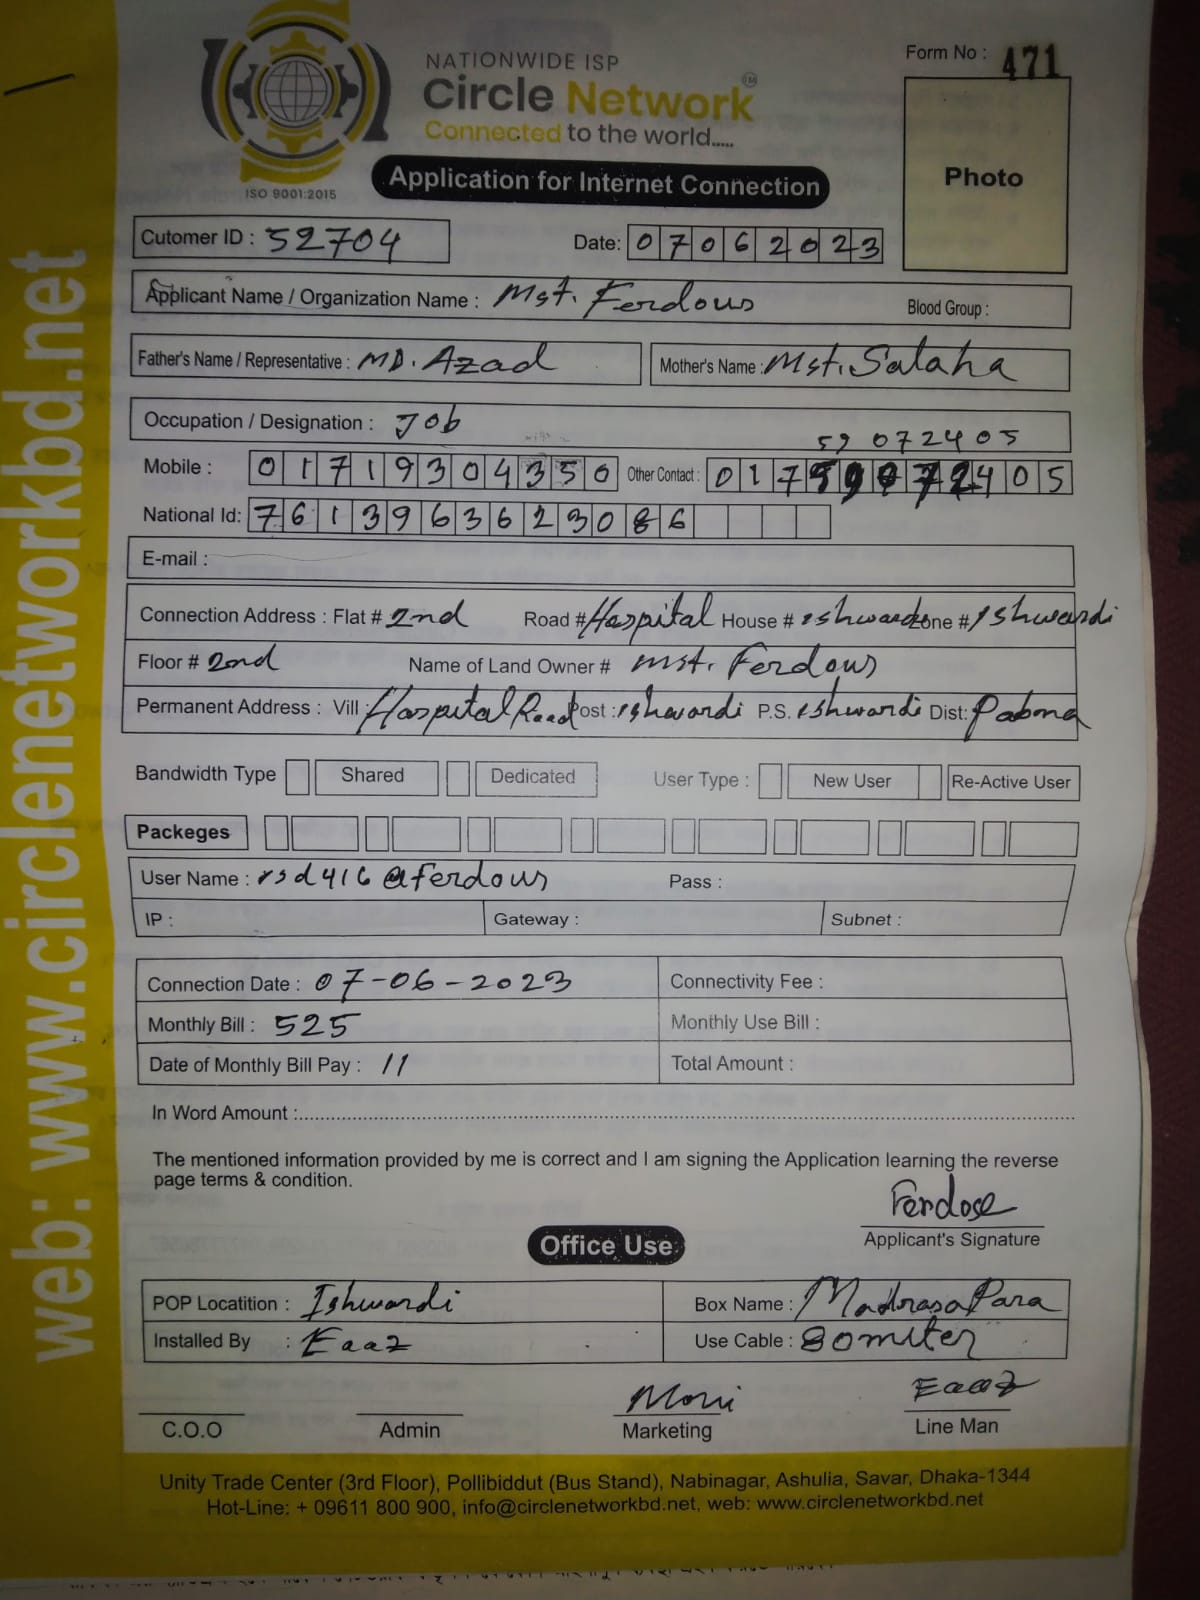 Form No : 471
NATIONWIDE ISP
Circle Network TM
Connected to the world.....
ISO 9001:2015
Application for Internet Connection
Photo
Cutomer ID : 52704 Date: 07062023
Applicant Name / Organization Name : Mst. Ferdous Blood Group :
Father's Name / Representative : MD. Azad Mother's Name : Mst. Salaha
Occupation / Designation : Job
59 072405
Mobile : 01719304350 Other Contact : 01759072405
National Id: 7613963623086
E-mail :
Connection Address : Flat # 2nd Road # Hospital House # ishwardi Zone # Ishwardi
Floor # 2nd Name of Land Owner # Mst. Ferdous
Permanent Address : Vill : Hospital Road Post : ishwardi P.S. ishwardi Dist: Pabna
Bandwidth Type Shared Dedicated User Type : New User Re-Active User
Packeges
User Name : rsd416@ferdous Pass :
IP : Gateway : Subnet :
Connection Date : 07-06-2023 Connectivity Fee :
Monthly Bill : 525 Monthly Use Bill :
Date of Monthly Bill Pay : 11 Total Amount :
In Word Amount :
The mentioned information provided by me is correct and I am signing the Application learning the reverse
page terms & condition.
Ferdose
Applicant's Signature
Office Use
POP Locatition : Ishwardi Box Name : Madrasa Para
Installed By : Eaaz Use Cable : 80 miter
Moni Eaaz
C.O.O Admin Marketing Line Man
Unity Trade Center (3rd Floor), Pollibiddut (Bus Stand), Nabinagar, Ashulia, Savar, Dhaka-1344
Hot-Line: + 09611 800 900, info@circlenetworkbd.net, web: www.circlenetworkbd.net
web: www.circlenetworkbd.net